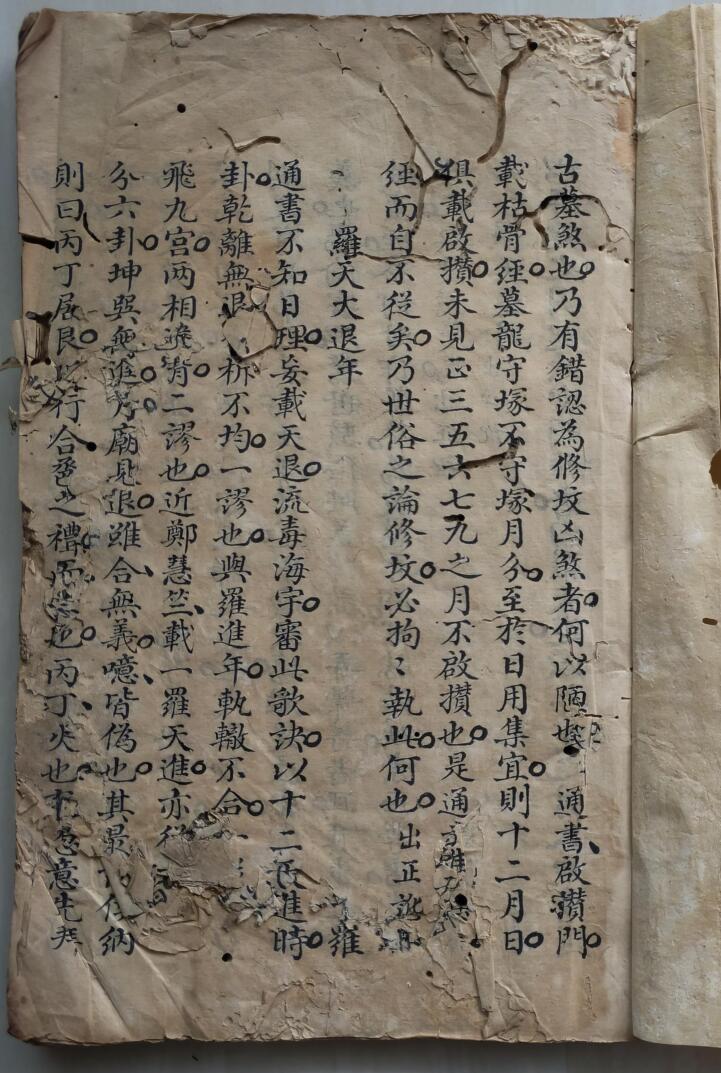 古墓煞也乃有錯認為修坟凶煞者何以陋也 通書啟攢門
載枯骨經墓龍守塚不守塚月分至於日用集宜則十二月日
俱載啟攢未見正三五六七九之月不啟攢也是通書雖
經而自不從矣乃世俗之論修坟必拘〻執此何也出正訛
羅天大退年 羅
通書不知日理妄載天退流毒海宇審此歌訣以十二辰進時
卦乾離無退 析不均一謬也與羅進年軌轍不合一
飛九宮两相遶背二謬也近鄭慧竺載一羅天進亦
分六卦坤巽無進月廟見退雖合無義噫皆偽也其最 納
則曰丙丁居艮以行合巹之禮 丙丁火也 意先拜